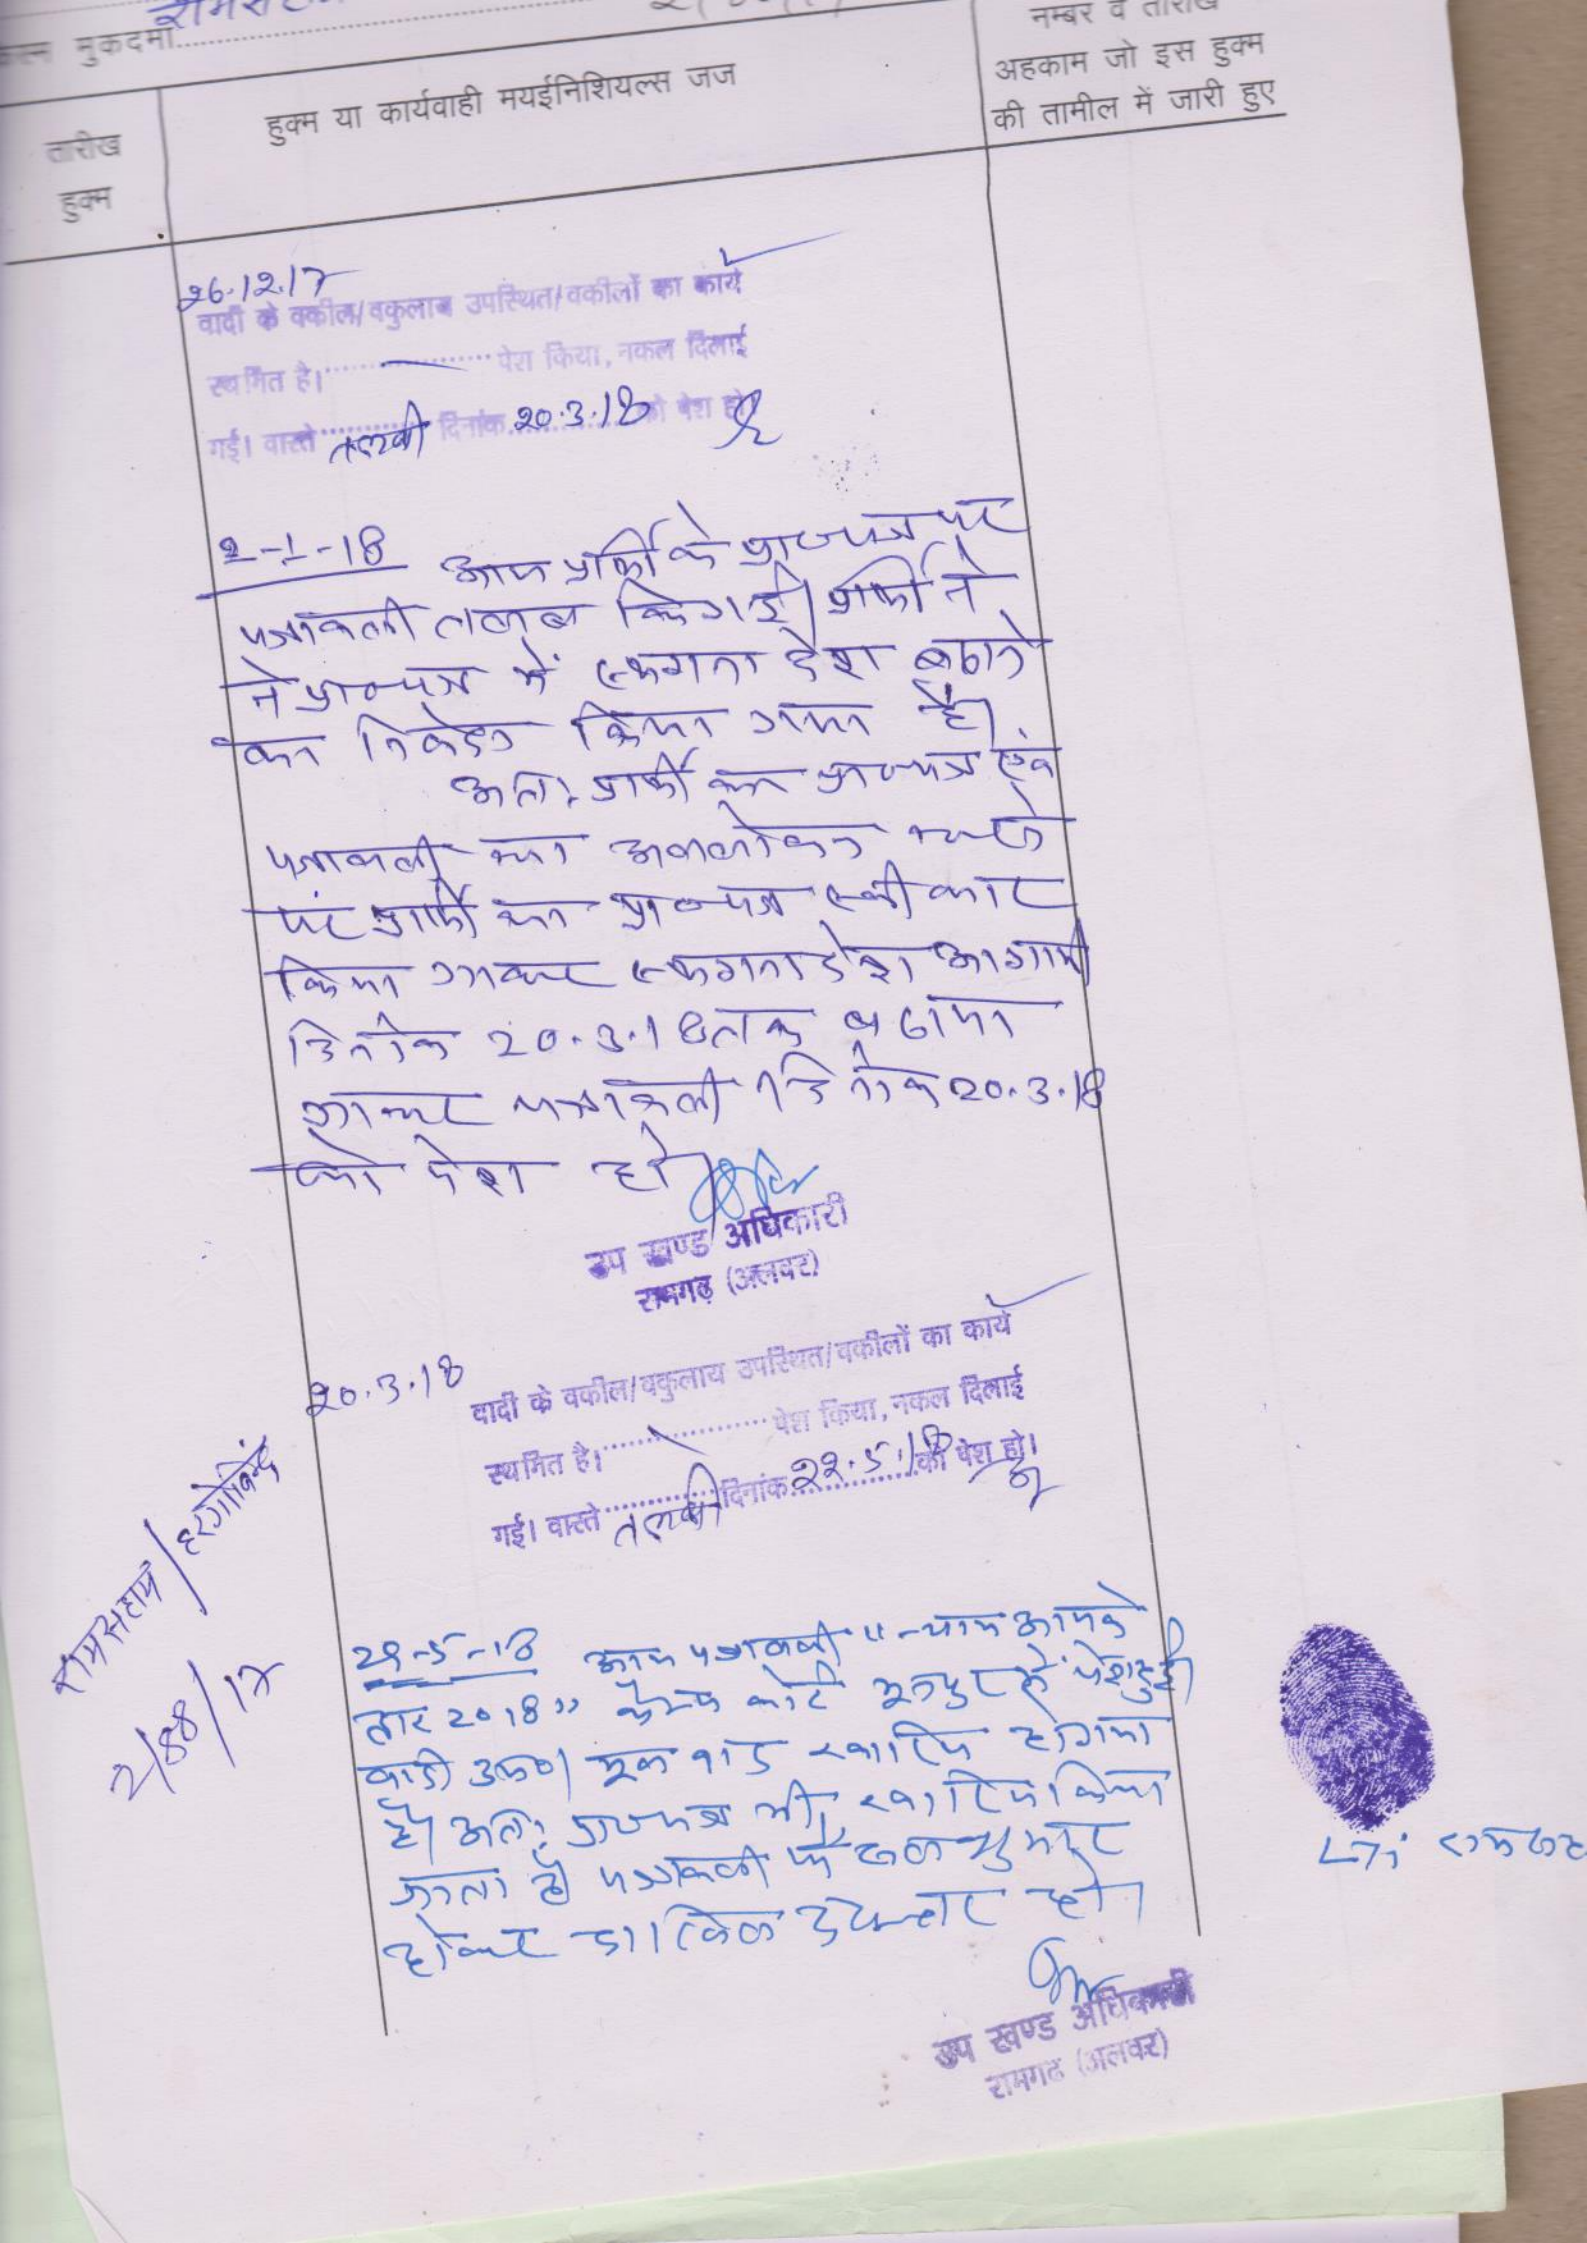 मुकदमा
नम्बर व तारीख
अहकाम जो इस हुक्म
की तामील में जारी हुए
हुक्म या कार्यवाही मयईनिशियल्स जज
तारीख
हुक्म
26.12.17
वादी के वकील/वकुलाय उपस्थित/वकीलों का कार्य
स्थगित है। पेश किया, नकल दिलाई
गई। वास्ते तलबी दिनांक 20.3.18 को पेश हो
2-1-18 आज प्रार्थी के प्रा०पत्र पर
पत्रावली तलब कि गई। प्रार्थी ने
ने प्रा०पत्र में स्थगनादेश बढाने
का निवेदन किया गया है।
अतः प्रार्थी का प्रा०पत्र एवं
पत्रावली का अवलोकन करने
पर प्रार्थी का प्रा०पत्र स्वीकार
किया जाकर स्थगनादेश आगामी
दिनांक 20.3.18 तक बढाया
जाकर पत्रावली दिनांक 20.3.18
को पेश हो।
उप खण्ड अधिकारी
रामगढ़ (अलवर)
20.3.18
वादी के वकील/वकुलाय उपस्थित/वकीलों का कार्य
स्थगित है। पेश किया, नकल दिलाई
गई। वास्ते तलबी दिनांक 22.5.18 को पेश हो।
रामसहाय / हरगोविन्द
2/88/17
आज पत्रावली "न्याय आपके
द्वार 2018" कैम्प कोर्ट में पेश हुई।
वादी उप०। मूल वाद खारिज हो गया
है। अतः प्रा०पत्र भी खारिज किया
जाता है। पत्रावली फैसल शुमार
होकर दाखिल दफ्तर हो।
उप खण्ड अधिकारी
रामगढ़ (अलवर)